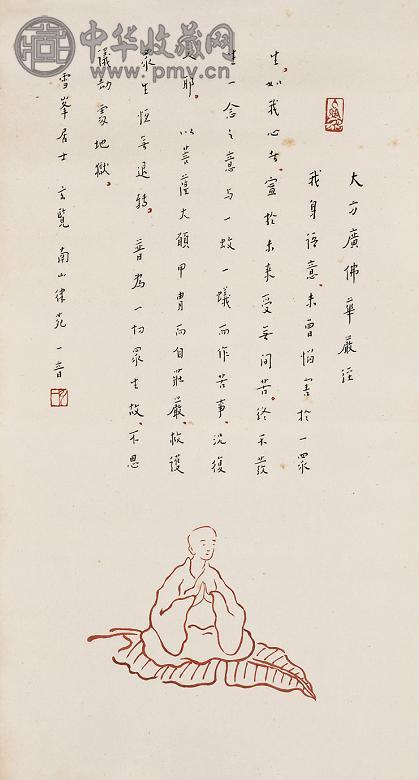 中华收藏网
www.pmy.cn
大方廣佛華嚴經
我身語意未曾惱害於一眾
生。如我心者寧於未來受無間苦。終不發
生一念之意与一蚊一蟻而作苦事。況復
人耶 以菩薩大願甲冑而自莊嚴。救護
眾生恒無退轉。 普為一切眾生故。不思
議劫處地獄。
雪峯居士 玄覽 南山律苑 一音